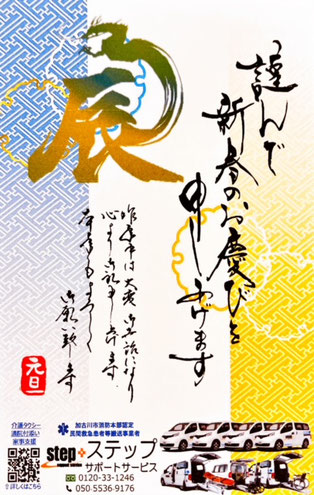 辰
謹んで
新春のお慶びを
申しあげます
昨年中は大変お世話になり
心より御礼申し上げます
本年もよろしく
お願い致します
元旦
介護タクシー
通院付添い
家事支援
詳しくはこちら
加古川市消防本部認定
民間救急患者等搬送事業者
step+ステップ
サポートサービス
0120-33-1246
050-5536-9176